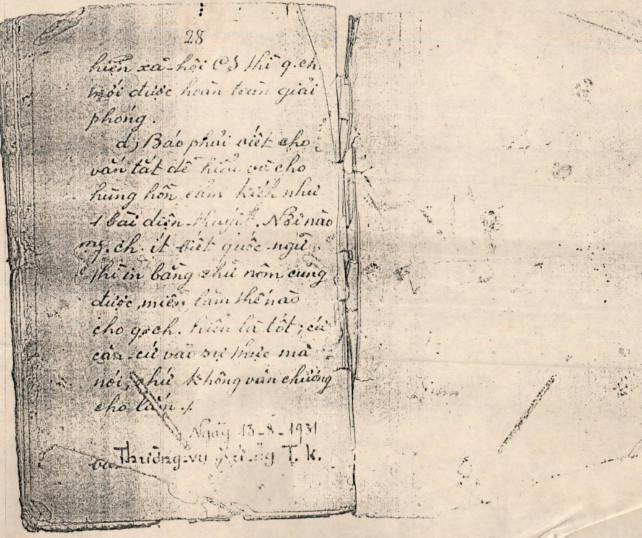 28
hiện xã-hội CS thì q.ch
mới được hoàn toàn giải
phóng.
d) Báo phải viết cho
vắn tắt dễ hiểu và cho
hùng hồn, cảm kích như
1 bài diễn-thuyết. Nơi nào
q.ch. ít biết quốc-ngữ
thì in bằng chữ nôm cũng
được, miễn làm thế nào
cho q.ch. hiểu là tốt, cứ
căn-cứ vào sự thực mà
nói, chứ không văn chương
cho lắm.
Ngày 13-8-1931
Thường-vụ T. K.